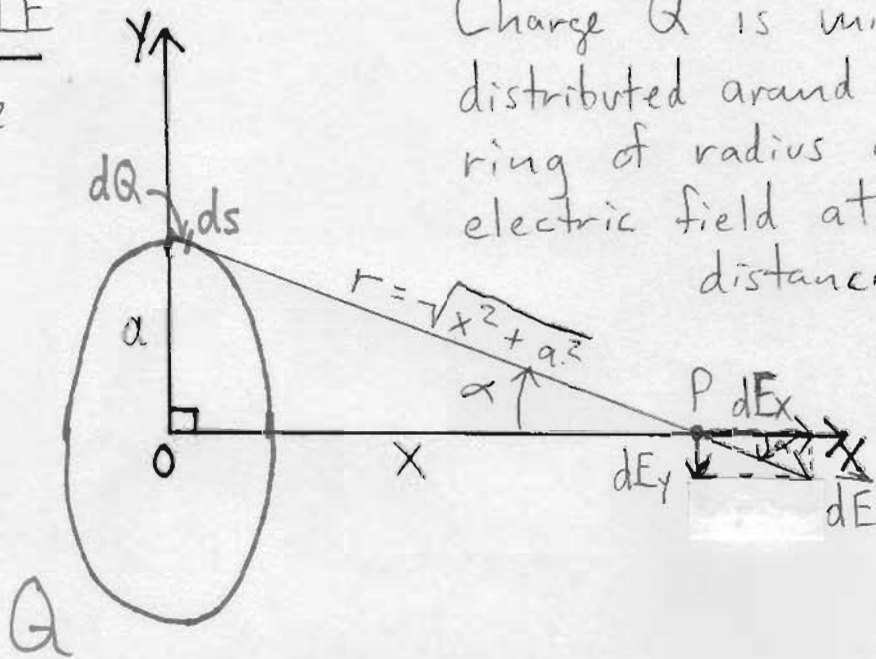 Charge Q is
distributed around
ring of radius
electric field at
distance
Y
dQ
ds
r = √x² + a²
a
α
P
dEx
O
X
X
dEy
α
dE
Q